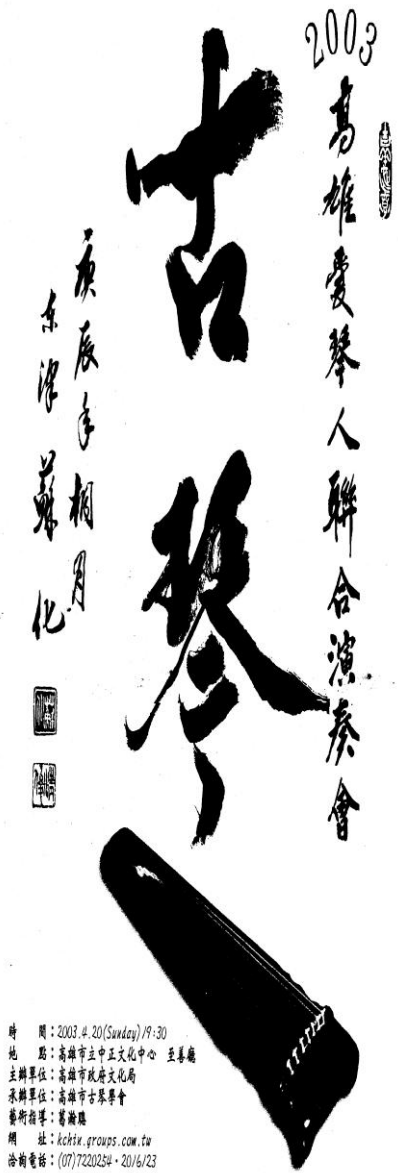 2003
高雄愛琴人聯合演奏會
古琴
庚辰年桐月
東津蘇化
時　間：2003.4.20(Sunday)19:30
地　點：高雄市立中正文化中心　至善廳
主辦單位：高雄市政府文化局
承辦單位：高雄市古琴學會
藝術指導：葛瀚聰
網　址：kchin.groups.com.tw
洽詢電話：(07)7220254·2016123